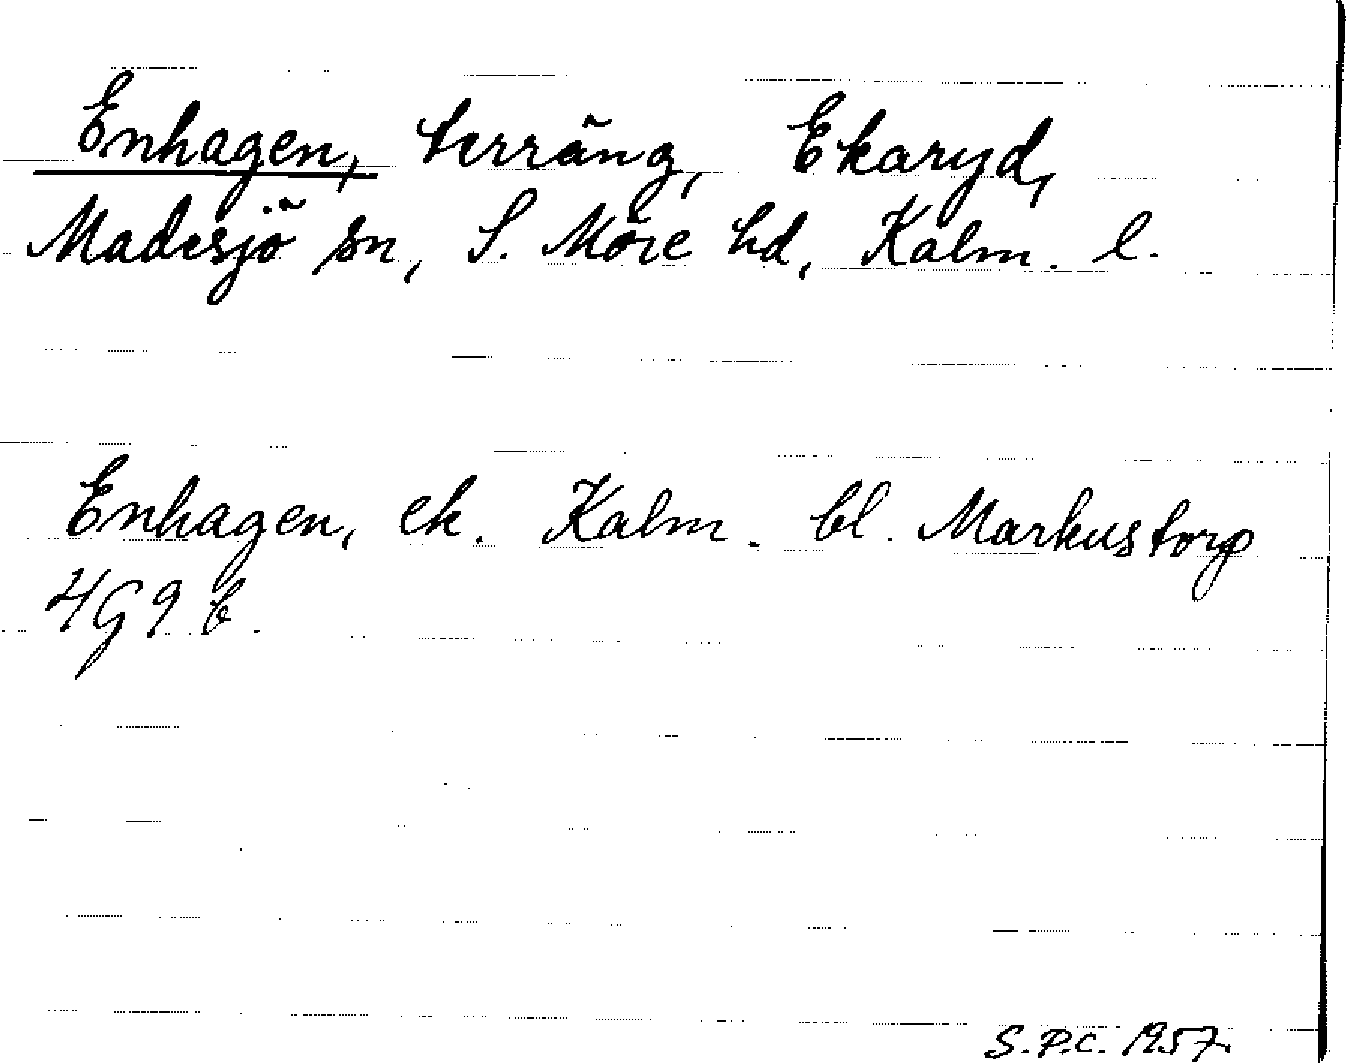 Enhagen, terräng, Ekaryd,
Madesjö sn, S. Möre hd, Kalm. l.
Enhagen, ek. Kalm. bl. Markustorp
4G9b.
S.P.C. 1957.